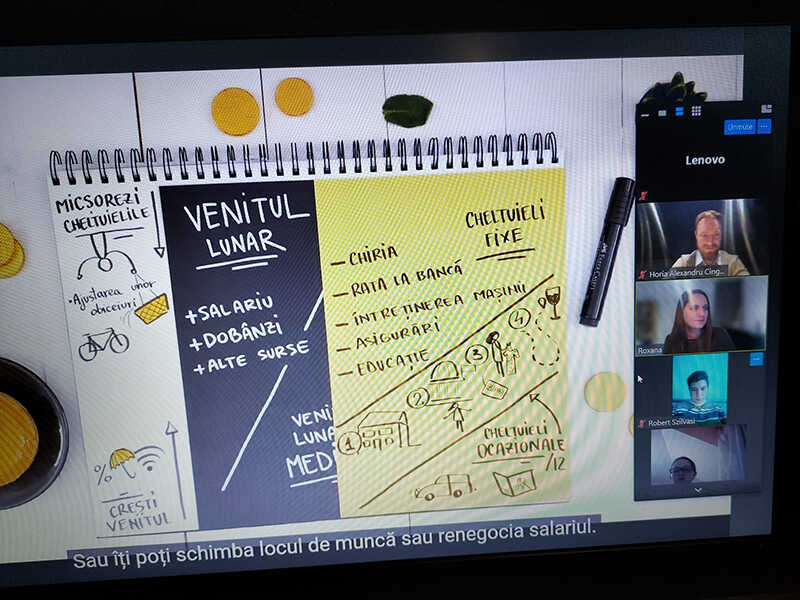 MICSOREZI
CHELTUIELILE
• Ajustarea unor
obiceiuri
%
CREȘTI
VENITUL
VENITUL
LUNAR
+SALARIU
+DOBÂNZI
+ALTE SURSE
VENI
LUNA
MEDI
CHELTUIELI
FIXE
—CHIRIA
—RATA LA BANCĂ
—ÎNTREȚINEREA MAȘINII
—ASIGURĂRI
—EDUCAȚIE
1
2
3
4
CHELTUIELI
OCAZIONALE
/12
Faber-Castell
Unmute
Lenovo
Horia Alexandru Cing...
Roxana
Robert Szilvasi
Sau îți poți schimba locul de muncă sau renegocia salariul.